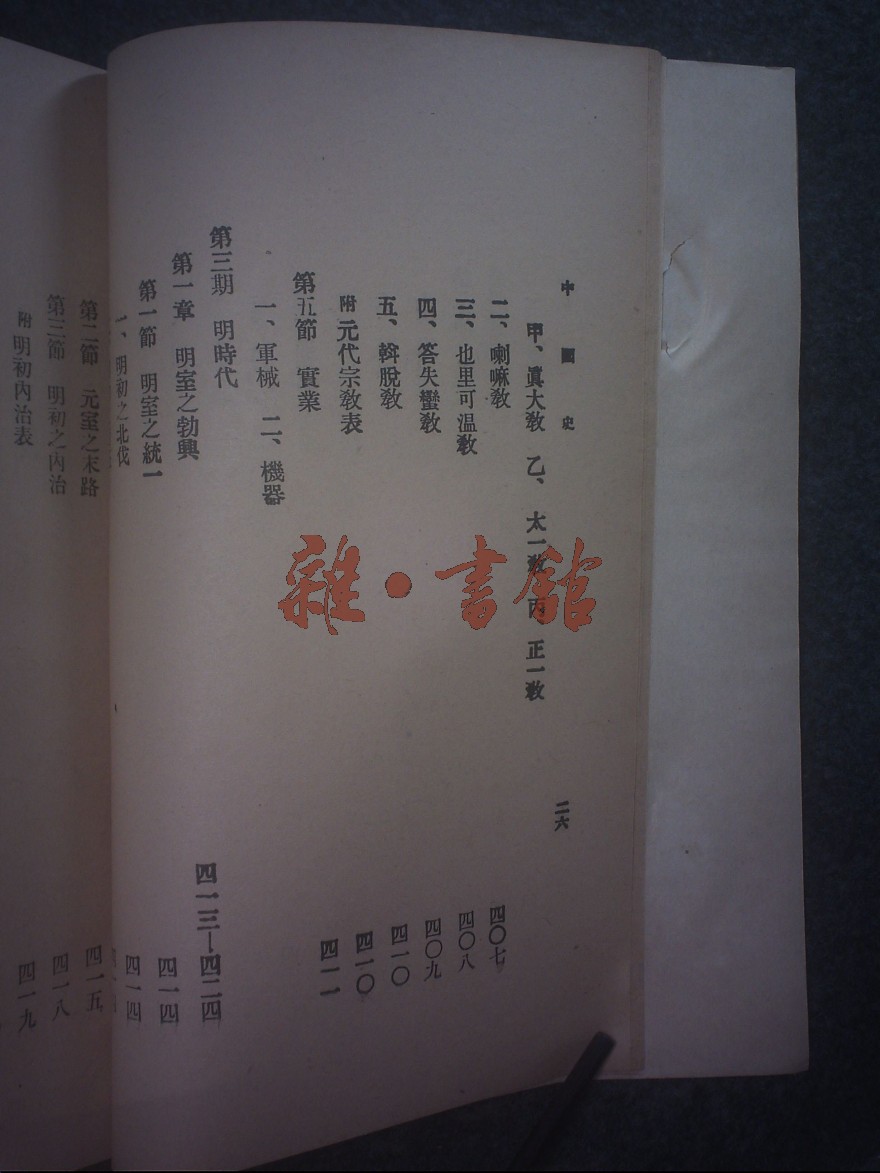 中國史 二六
甲、眞大敎 乙、太一敎 丙、正一敎
二、喇嘛敎 四〇七
三、也里可温敎 四〇八
四、答失蠻敎 四〇九
五、斡脫敎 四一〇
附 元代宗敎表 四一〇
第五節 實業 四一一
一、軍械 二、機器
第三期 明時代 四一三—四二四
第一章 明室之勃興 四一四
第一節 明室之統一 四一四
一、明初之北伐
第二節 元室之末路 四一五
第三節 明初之內治 四一八
附 明初內治表 四一九
雜·書館